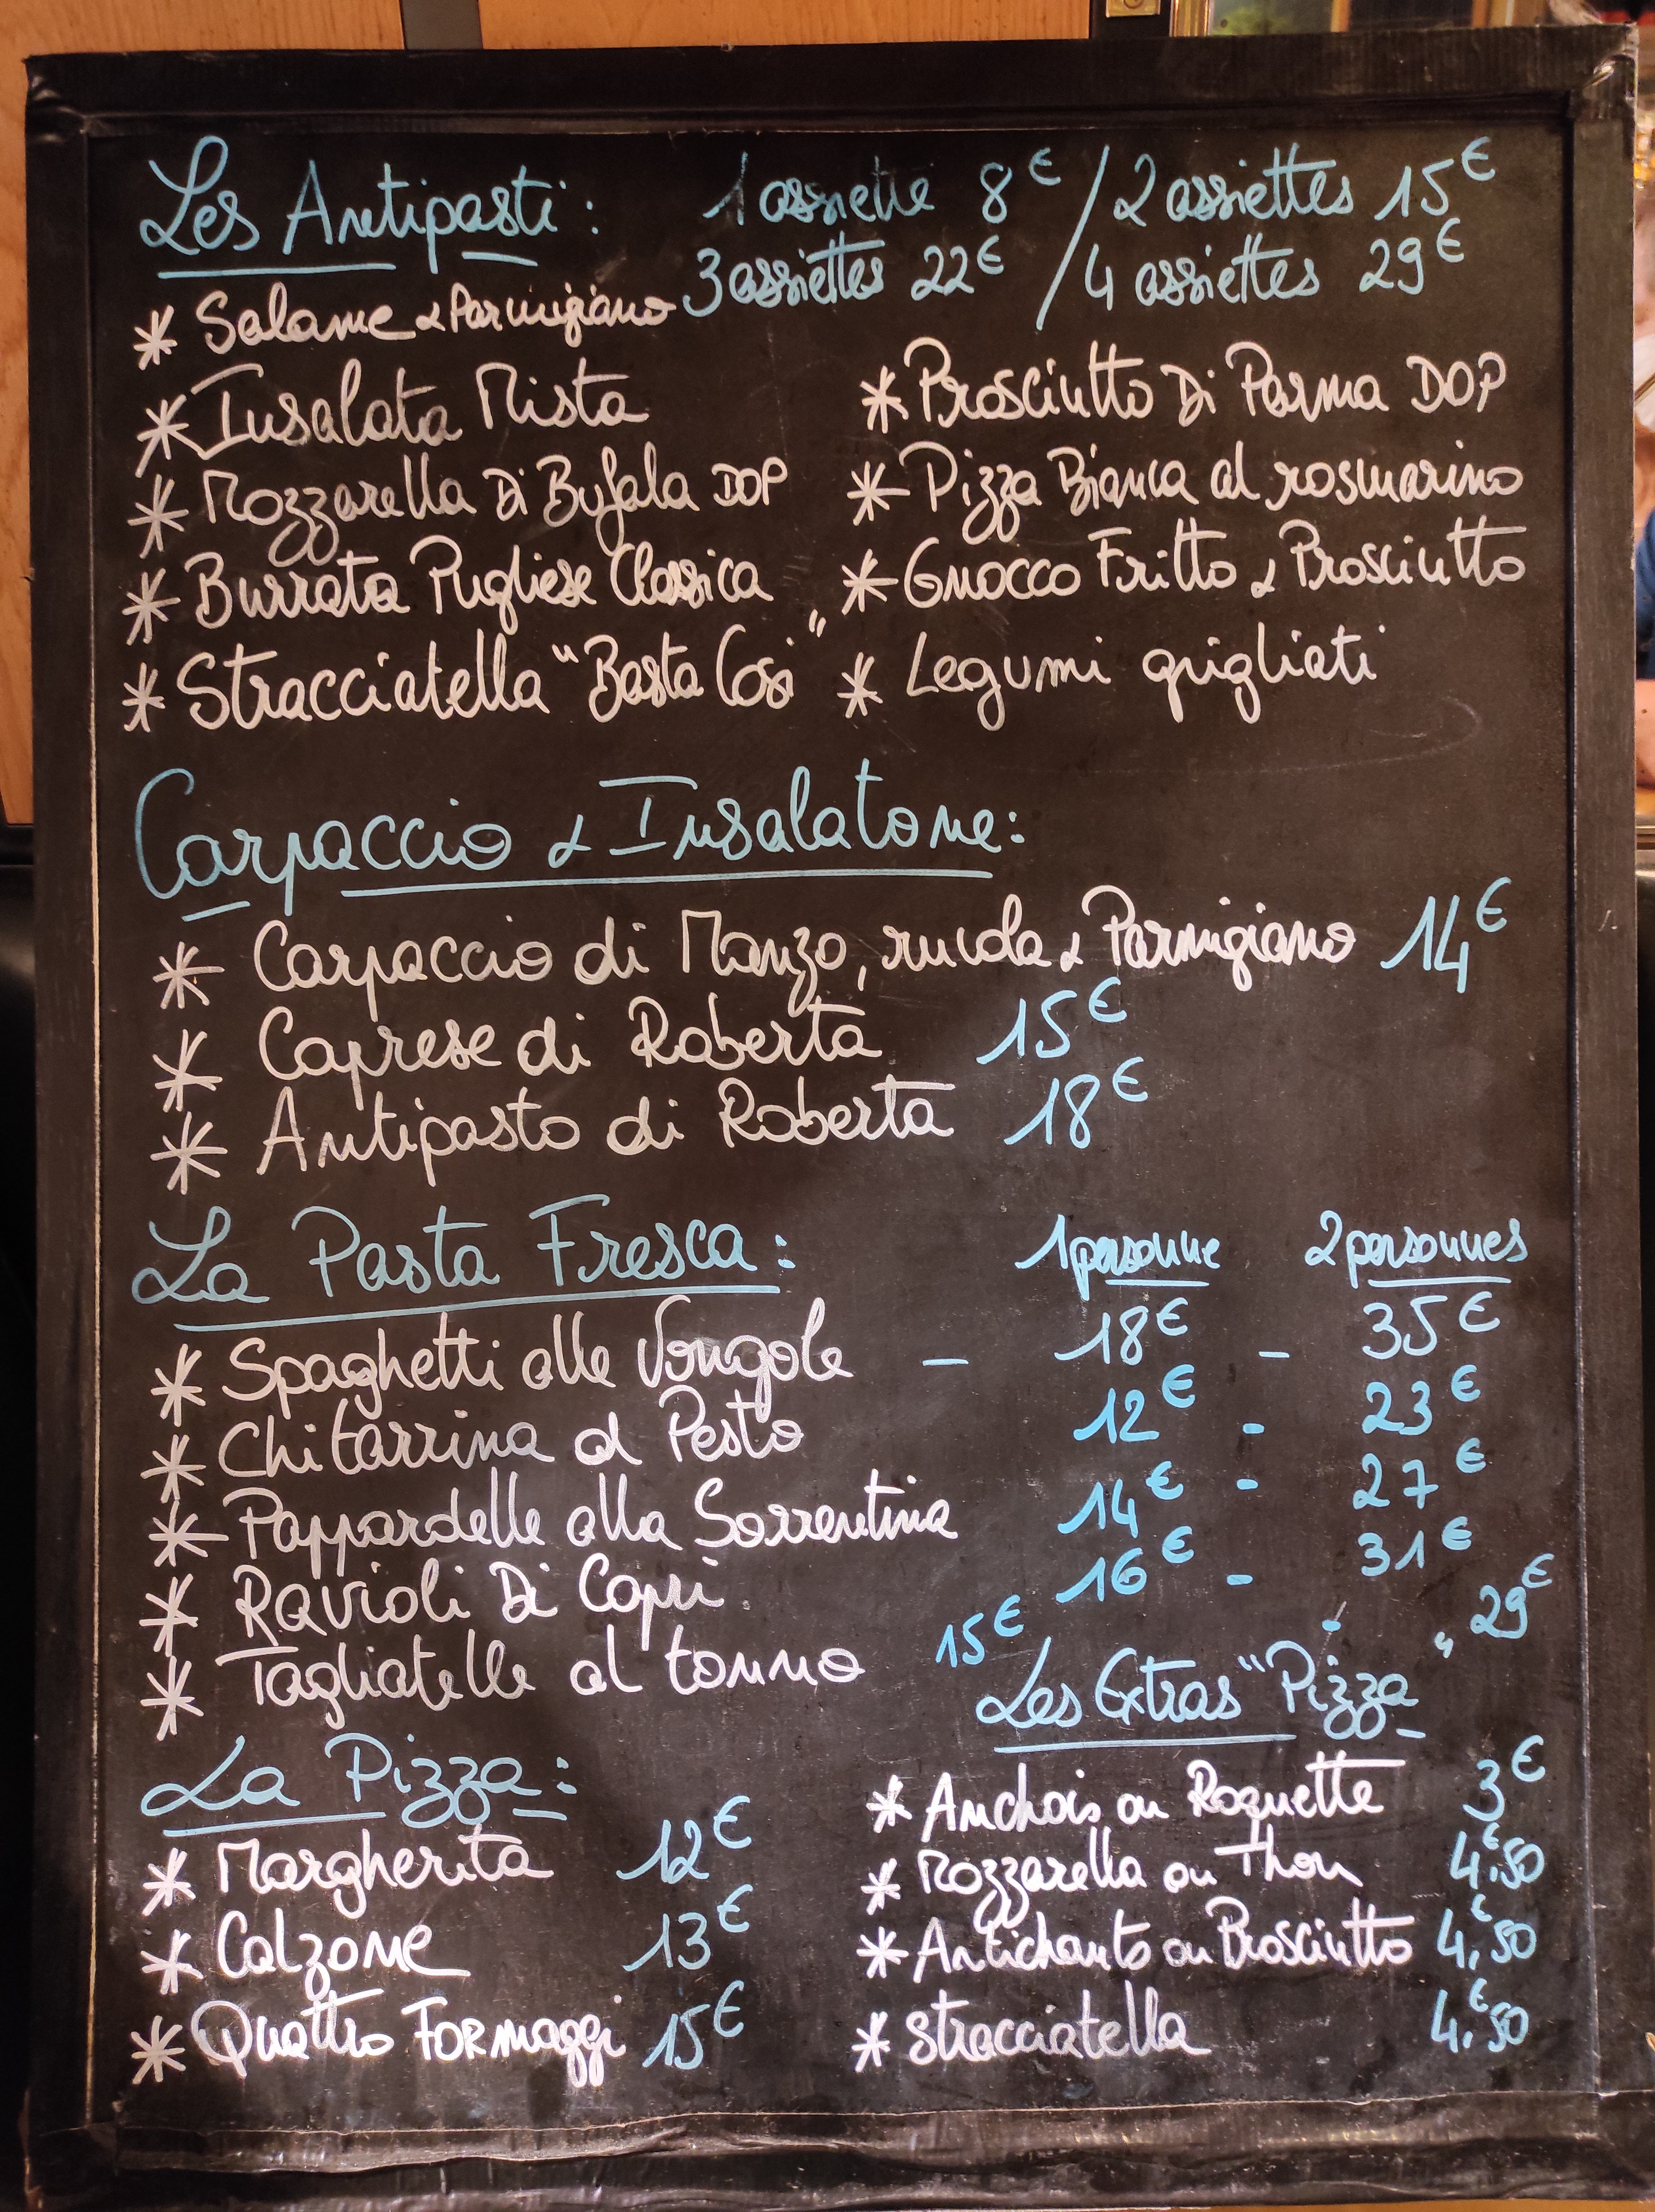 Les Antipasti : 1 assiette 8€ / 2 assiettes 15€
3 assiettes 22€ / 4 assiettes 29€
* Salame & Parmigiano
* Insalata Mista
* Mozzarella Di Bufala DOP
* Burrata Pugliese Classica
* Stracciatella "Basta Cosi"
* Prosciutto Di Parma DOP
* Pizza Bianca al rosmarino
* Gnocco Fritto & Prosciutto
* Legumi grigliati
Carpaccio & Insalatone :
* Carpaccio di Manzo, rucola & Parmigiano 14€
* Caprese di Roberta 15€
* Antipasto di Roberta 18€
La Pasta Fresca : 1 personne 2 personnes
* Spaghetti alle Vongole - 18€ - 35€
* Chitarrina al Pesto 12€ - 23€
* Pappardelle alla Sorrentina 14€ - 27€
* Ravioli Di Capri 16€ - 31€
* Tagliatelle al tonno 15€ - 29€
La Pizza :
* Margherita 12€
* Calzone 13€
* Quattro Formaggi 15€
Les Extras "Pizza"
* Anchois ou Roquette 3€
* Mozzarella ou Thon 4€,50
* Artichauts ou Prosciutto 4€,50
* Stracciatella 4€,50